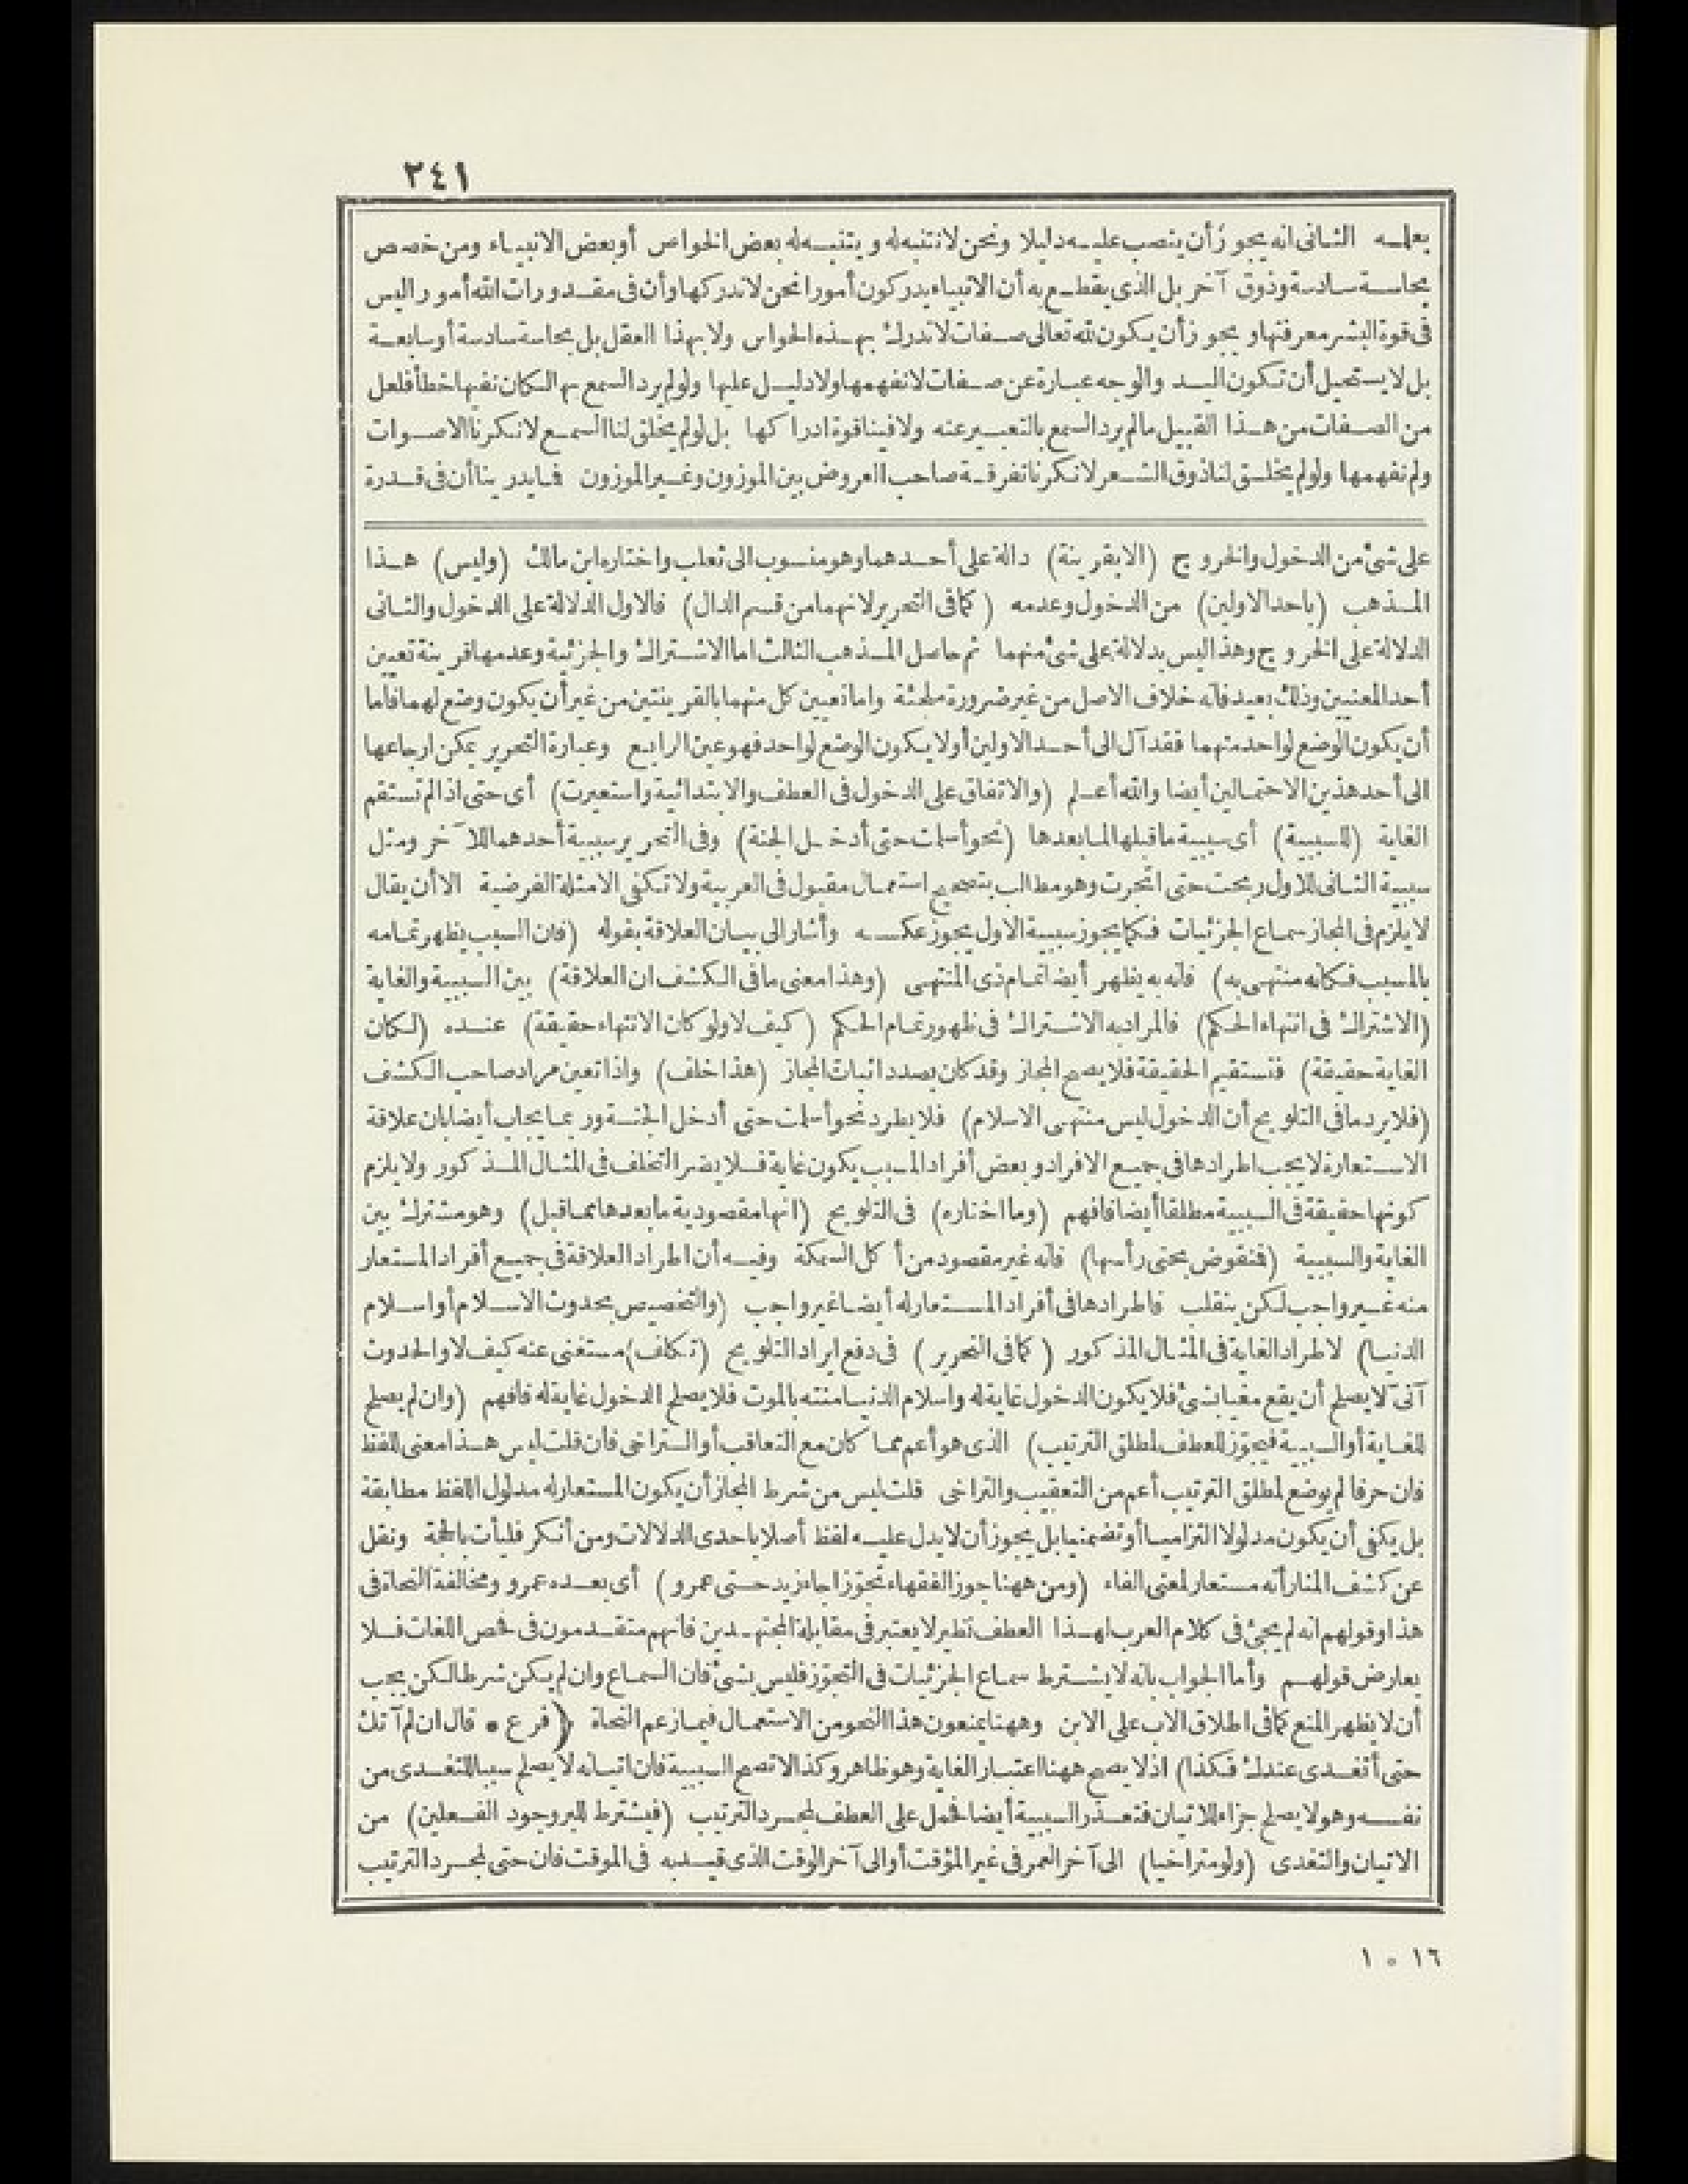 ٢٤١
يعلمه الثانى انه يجوز أن ينصب عليه دليلا ونحن لانتنبه له ويتنبه له بعض الخواص أو بعض الانبياء ومن خصص
بحاسة سادسة وذوق آخر بل الذى يقطع به أن الانبياء يدركون أمورا نحن لاندركها وأن فى مقدورات الله أمورا ليس
فى قوة البشر معرفتها ويجوز أن يكون لله تعالى صفات لاتدرك بهذه الحواس ولا بهذا العقل بل بحاسة سادسة أو سابعة
بل لا يستحيل أن تكون اليد والوجه عبارة عن صفات لانفهمها ولا دليل عليها ولو لم يرد السمع بها لكان نفيها خطأ فلعل
من الصفات من هذا القبيل مالم يرد السمع بالتعبير عنه ولا فينا قوة ادراكها بل لو لم يخلق لنا السمع لانكرنا الاصوات
ولم نفهمها ولو لم يخلق لنا ذوق الشعر لانكرنا تفرقة صاحب العروض بين الموزون وغير الموزون فما يدرينا أن فى قدرة
على شئ من الدخول والخروج (الابقرينة) دالة على أحدهما وهو منسوب الى ثعلب واختاره ابن مالك (وليس) هذا
المذهب (باحد الاولين) من الدخول وعدمه (كما فى التحرير لانهما من قسم الدال) فالاول الدلالة على الدخول والثانى
الدلالة على الخروج وهذا ليس بدلالة على شئ منهما ثم حاصل المذهب الثالث اما الاشتراك والجزئية وعدمها قرينة تعيين
أحد المعنيين وذلك بعيد فانه خلاف الاصل من غير ضرورة ملجئة واما تعيين كل منهما بالقرينتين من غير أن يكون وضع لهما فاما
أن يكون الوضع لواحد منهما فقد آل الى أحد الاولين أولا يكون الوضع لواحد فهو عين الرابع وعبارة التحرير يمكن ارجاعها
الى أحد هذين الاحتمالين أيضا والله أعلم (والاتفاق على الدخول فى العطف والابتدائية واستعيرت) أى حتى اذا لم تستقم
الغاية (للسببية) أى سببية ماقبلها لما بعدها (نحو أسلمت حتى أدخل الجنة) وفى التحرير سببية أحدهما للآخر ومثل
سببية الثانى للاول ربحت حتى اتجرت وهو مطالب بتصحيح استعمال مقبول فى العربية ولا تكفى الامثلة الفرضية الا أن يقال
لا يلزم فى المجاز سماع الجزئيات فكما يجوز سببية الاول يجوز عكسه وأشار الى بيان العلاقة بقوله (فان السبب يظهر تمامه
بالمسبب فكأنه منتهى به) فانه به يظهر أيضا تمام ذى المنتهى (وهذا معنى ما فى الكشف ان العلاقة) بين السببية والغاية
(الاشتراك فى انتهاء الحكم) فالمراد به الاشتراك فى ظهور تمام الحكم (كيف لا ولو كان الانتهاء حقيقة) عنده (لكان
الغاية حقيقة) فتستقيم الحقيقة فلا يصح المجاز وقد كان بصدد اثبات المجاز (هذا خلف) واذا تعين مراد صاحب الكشف
(فلا يرد ما فى التلويح أن الدخول ليس منتهى الاسلام) فلا يطرد نحو أسلمت حتى أدخل الجنة وربما يجاب أيضا بان علاقة
الاستعارة لا يجب اطرادها فى جميع الافراد وبعض أفراد المسبب يكون غاية فلا يضر التخلف فى المثال المذكور ولا يلزم
كونها حقيقة فى السببية مطلقا أيضا فافهم (وما اختاره) فى التلويح (انها مقصودية ما بعدها مما قبل) وهو مشترك بين
الغاية والسببية (فنقوض بحتى رأسها) فانه غير مقصود من أكل السمكة وفيه أن اطراد العلاقة فى جميع أفراد المستعار
منه غير واجب لكن ينقلب فاطرادها فى أفراد المستعار له أيضا غير واجب (والتخصيص بحدوث الاسلام أو اسلام
الدنيا) لاطراد الغاية فى المثال المذكور (كما فى التحرير) فى دفع ايراد التلويح (تكلف) مستغنى عنه كيف لا والحدوث
آنى لا يصلح أن يقع مغيا بشئ فلا يكون الدخول غاية له واسلام الدنيا منته بالموت فلا يصلح الدخول غاية له فافهم (وان لم يصلح
للغاية أو السببية فيجوز للعطف لمطلق الترتيب) الذى هو أعم مما كان مع التعاقب أو التراخى فان قلت ليس هذا معنى للفظ
فان حرفا لم يوضع لمطلق الترتيب أعم من التعقيب والتراخى قلت ليس من شرط المجاز أن يكون المستعار له مدلول اللفظ مطابقة
بل يكفى أن يكون مدلولا التزاميا أو تضمنيا بل يجوز أن لا يدل عليه لفظ أصلا باحدى الدلالات ومن أنكر فليأت بالحجة ونقل
عن كشف المنار أنه مستعار لمعنى الفاء (ومن ههنا جوز الفقهاء تجوزا جاء زيد حتى عمرو) أى بعده عمرو ومخالفة النحاة فى
هذا وقولهم انه لم يجئ فى كلام العرب لهذا العطف نظير لا يعتبر فى مقابلة المجتهدين فانهم متقدمون فى فحص اللغات فلا
يعارض قولهم وأما الجواب بانه لا يشترط سماع الجزئيات فى التجوز فليس بشئ فان السماع وان لم يكن شرطا لكن يجب
أن لا يظهر المنع كما فى اطلاق الاب على الابن وههنا يمنعون هذا النحو من الاستعمال فيما زعم النحاة ﴿فرع * قال ان لم آتك
حتى أتغدى عندك فكذا) اذ لا يصح ههنا اعتبار الغاية وهو ظاهر وكذا لا تصح السببية فان اتيانه لا يصلح سببا للتغدى من
نفسه وهو لا يصلح جزاء للاتيان فتعذر السببية أيضا فحمل على العطف لمجرد الترتيب (فيشترط للبر وجود الفعلين) من
الاتيان والتغدى (ولو متراخيا) الى آخر العمر فى غير المؤقت أو الى آخر الوقت الذى قيد به فى الموقت فان حتى لمجرد الترتيب
١٦ ٥ ١